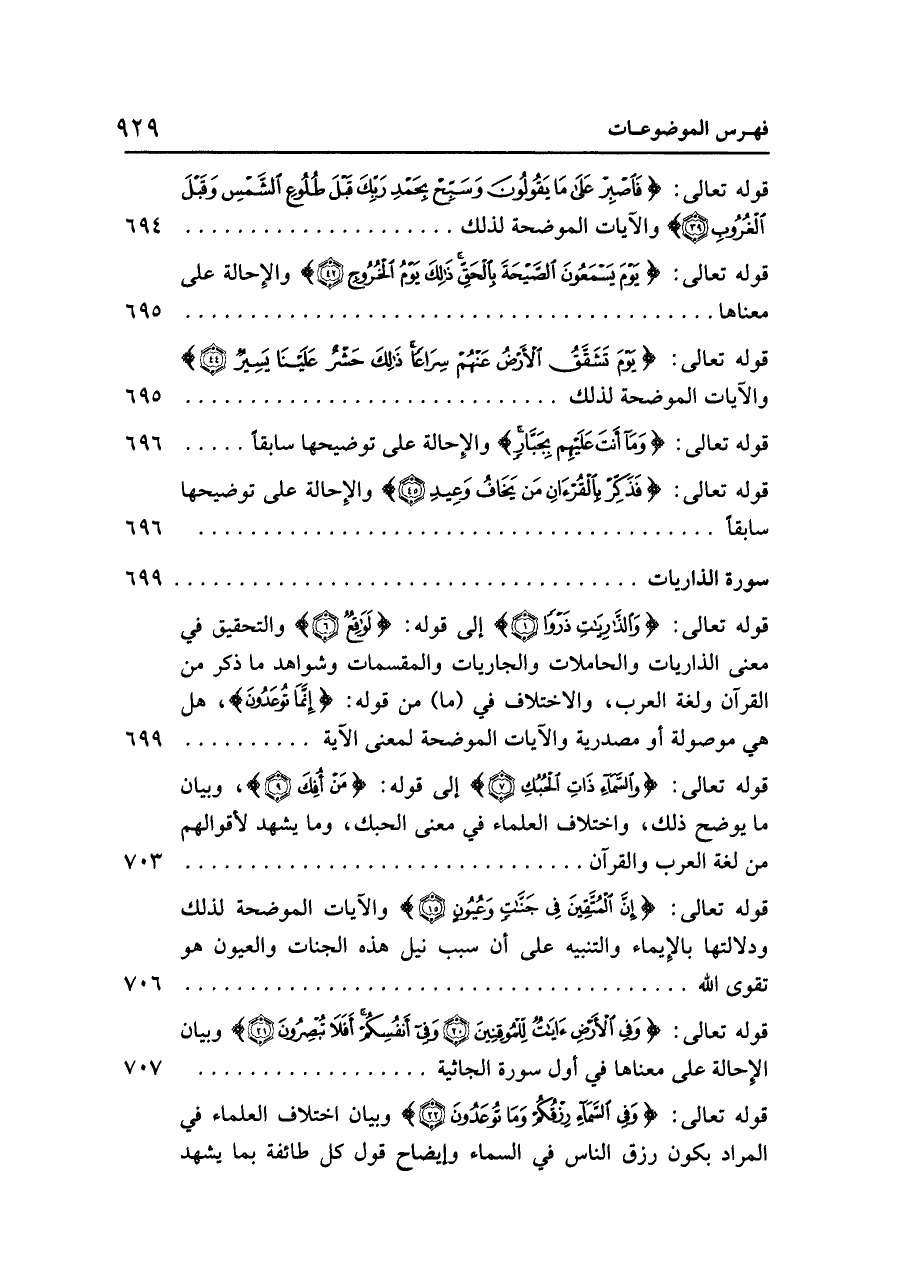 فهـرس الموضوعـات ٩٢٩
قوله تعالى: ﴿ فَٱصۡبِرۡ عَلَىٰ مَا يَقُولُونَ وَسَبِّحۡ بِحَمۡدِ رَبِّكَ قَبۡلَ طُلُوعِ ٱلشَّمۡسِ وَقَبۡلَ
ٱلۡغُرُوبِ ۝٣٩ ﴾ والآيات الموضحة لذلك . . . . . . . . . . . . . . . . . . . . . ٦٩٤
قوله تعالى: ﴿ يَوۡمَ يَسۡمَعُونَ ٱلصَّيۡحَةَ بِٱلۡحَقِّۚ ذَٰلِكَ يَوۡمُ ٱلۡخُرُوجِ ۝٤٢ ﴾ والإحالة على
معناها . . . . . . . . . . . . . . . . . . . . . . . . . . . . . . . . . . . . . . . . ٦٩٥
قوله تعالى: ﴿ يَوۡمَ تَشَقَّقُ ٱلۡأَرۡضُ عَنۡهُمۡ سِرَاعٗاۚ ذَٰلِكَ حَشۡرٌ عَلَيۡنَا يَسِيرٞ ۝٤٤ ﴾
والآيات الموضحة لذلك . . . . . . . . . . . . . . . . . . . . . . . . . . . . . ٦٩٥
قوله تعالى: ﴿ وَمَآ أَنتَ عَلَيۡهِم بِجَبَّارٖۖ ﴾ والإحالة على توضيحها سابقاً . . . . . ٦٩٦
قوله تعالى: ﴿ فَذَكِّرۡ بِٱلۡقُرۡءَانِ مَن يَخَافُ وَعِيدِ ۝٤٥ ﴾ والإحالة على توضيحها
سابقاً . . . . . . . . . . . . . . . . . . . . . . . . . . . . . . . . . . . . . . . . ٦٩٦
سورة الذاريات . . . . . . . . . . . . . . . . . . . . . . . . . . . . . . . . . . . . ٦٩٩
قوله تعالى: ﴿ وَٱلذَّٰرِيَٰتِ ذَرۡوٗا ۝١ ﴾ إلى قوله: ﴿ لَوَٰقِعٞ ۝٦ ﴾ والتحقيق في
معنى الذاريات والحاملات والجاريات والمقسمات وشواهد ما ذكر من
القرآن ولغة العرب، والاختلاف في (ما) من قوله: ﴿ إِنَّمَا تُوعَدُونَ ﴾، هل
هي موصولة أو مصدرية والآيات الموضحة لمعنى الآية . . . . . . . . . . ٦٩٩
قوله تعالى: ﴿ وَٱلسَّمَآءِ ذَاتِ ٱلۡحُبُكِ ۝٧ ﴾ إلى قوله: ﴿ مَنۡ أُفِكَ ۝٩ ﴾، وبيان
ما يوضح ذلك، واختلاف العلماء في معنى الحبك، وما يشهد لأقوالهم
من لغة العرب والقرآن . . . . . . . . . . . . . . . . . . . . . . . . . . . . . . . ٧٠٣
قوله تعالى: ﴿ إِنَّ ٱلۡمُتَّقِينَ فِي جَنَّٰتٖ وَعُيُونٍ ۝١٥ ﴾ والآيات الموضحة لذلك
ودلالتها بالإيماء والتنبيه على أن سبب نيل هذه الجنات والعيون هو
تقوى الله . . . . . . . . . . . . . . . . . . . . . . . . . . . . . . . . . . . . . . . ٧٠٦
قوله تعالى: ﴿ وَفِي ٱلۡأَرۡضِ ءَايَٰتٞ لِّلۡمُوقِنِينَ ۝٢٠ وَفِيٓ أَنفُسِكُمۡۚ أَفَلَا تُبۡصِرُونَ ۝٢١ ﴾ وبيان
الإحالة على معناها في أول سورة الجاثية . . . . . . . . . . . . . . . . . . ٧٠٧
قوله تعالى: ﴿ وَفِي ٱلسَّمَآءِ رِزۡقُكُمۡ وَمَا تُوعَدُونَ ۝٢٢ ﴾ وبيان اختلاف العلماء في
المراد بكون رزق الناس في السماء وإيضاح قول كل طائفة بما يشهد